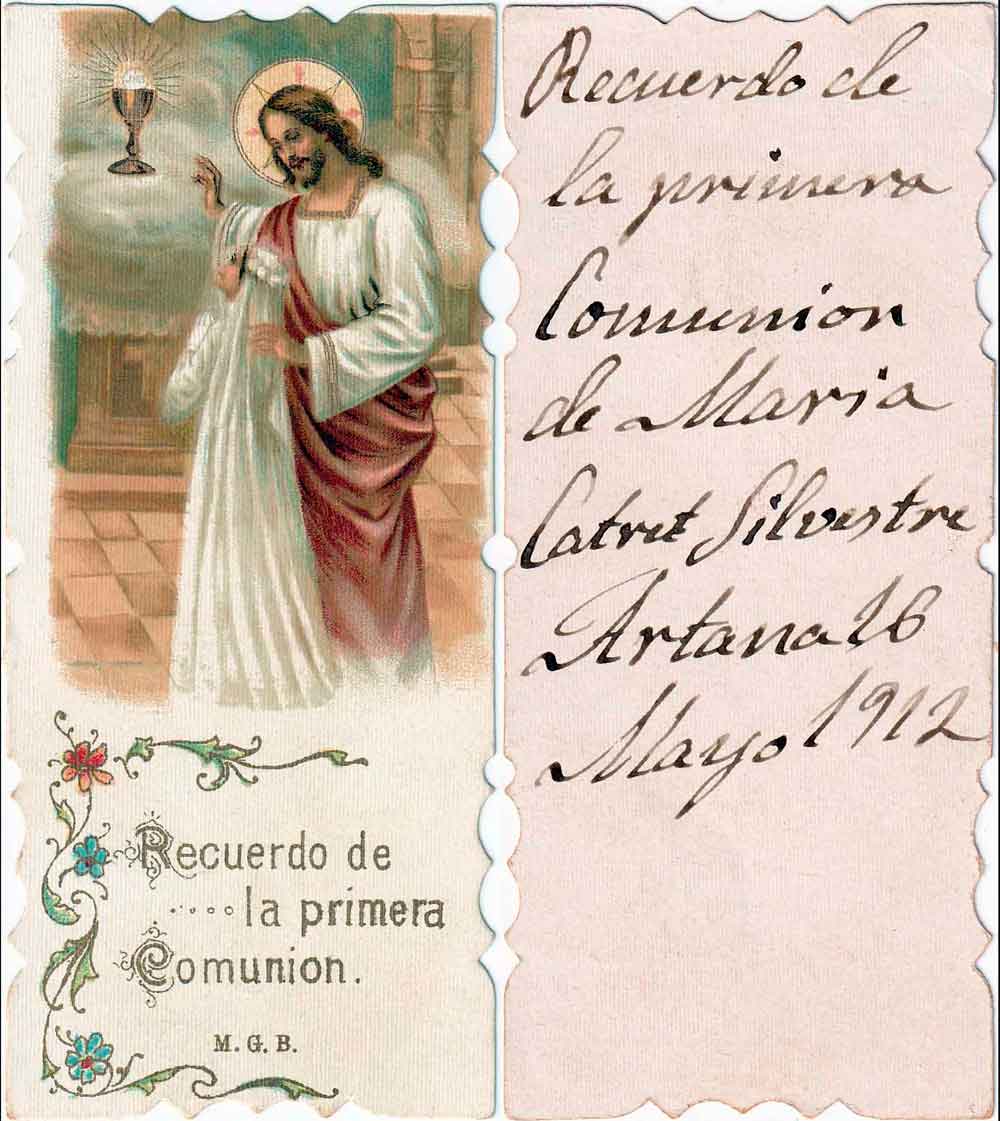 Recuerdo de
la primera
Comunion.
M. G. B.
Recuerdo de
la primera
Comunion
de Maria
Catret Silvestre
Artana 16
Mayo 1912